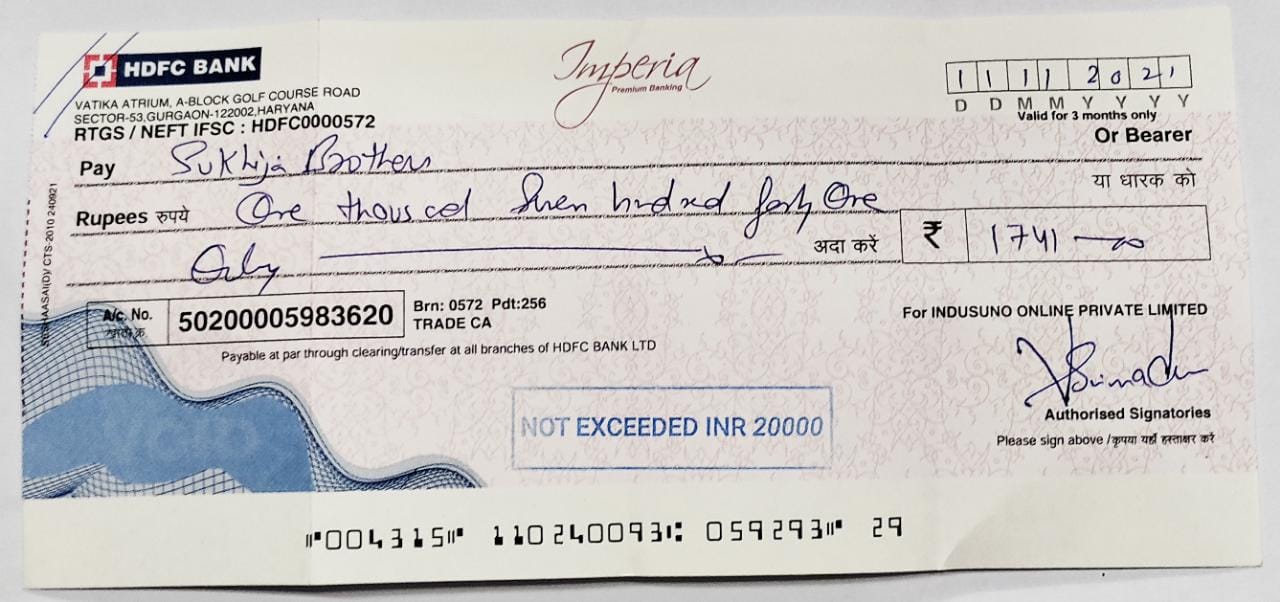 HDFC BANK
VATIKA ATRIUM, A-BLOCK GOLF COURSE ROAD
SECTOR-53, GURGAON-122002, HARYANA
RTGS / NEFT IFSC : HDFC0000572
Imperia
Premium Banking
1 1 1 1 2 0 2 1
D D M M Y Y Y Y
Valid for 3 months only
Or Bearer
Pay Sukhija Brothers
या धारक को
Rupees रुपये One thousand Seven hundred forty One
Only
अदा करें
₹ 1741
A/c. No. 50200005983620
Brn: 0572 Pdt:256
TRADE CA
Payable at par through clearing/transfer at all branches of HDFC BANK LTD
For INDUSUNO ONLINE PRIVATE LIMITED
NOT EXCEEDED INR 20000
Authorised Signatories
Please sign above / कृपया यहाँ हस्ताक्षर करे
CTS-2010 240921
⑈004315⑈ 110240093⑆ 059293⑈ 29